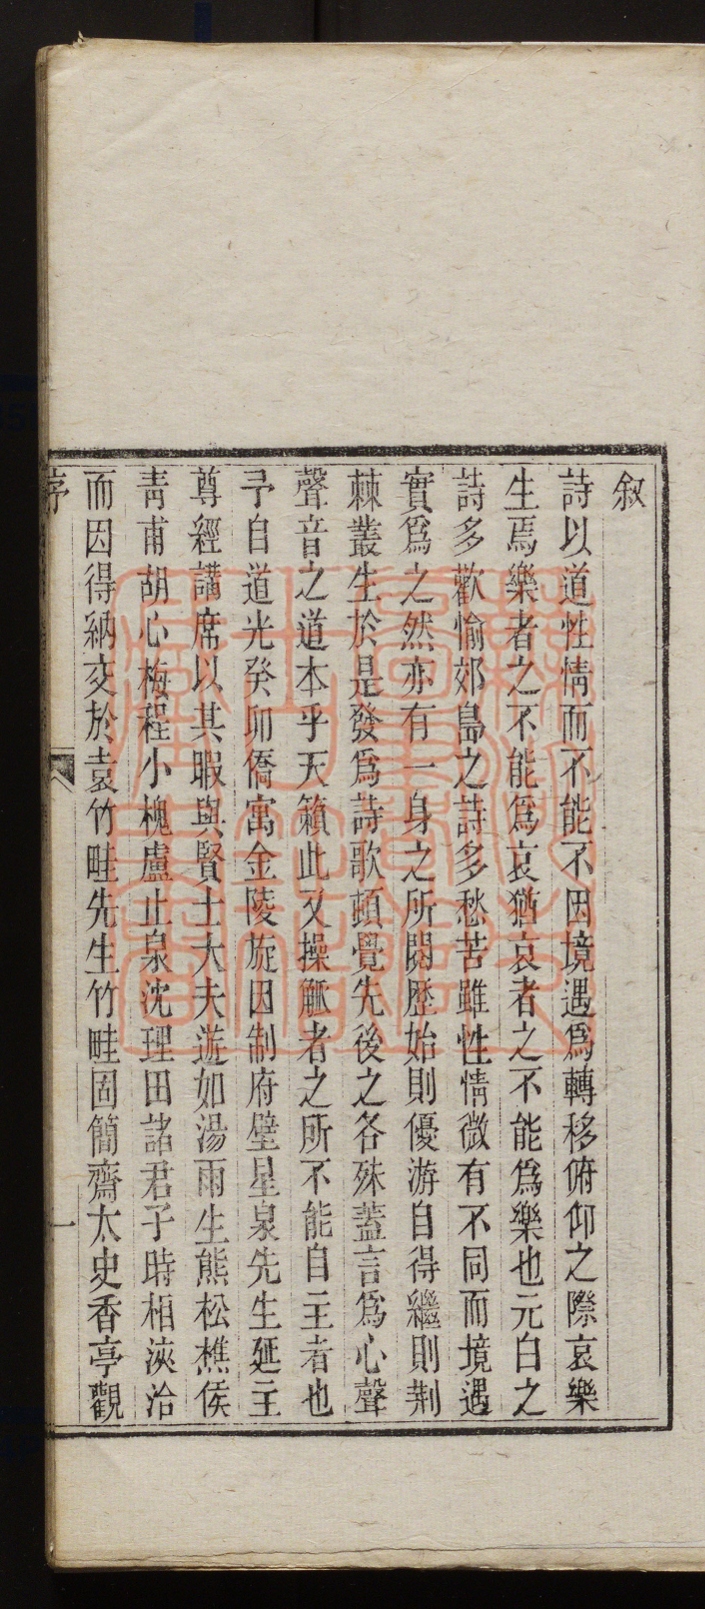 叙
詩以道性情而不能不因境遇爲轉移俯仰之際哀樂
生焉樂者之不能爲哀猶哀者之不能爲樂也元白之
詩多歡愉郊島之詩多愁苦雖性情微有不同而境遇
實爲之然亦有一身之所閱歷始則優游自得繼則荆
棘叢生於是發爲詩歌頓覺先後之各殊蓋言爲心聲
聲音之道本乎天籟此又操觚者之所不能自主者也
予自道光癸卯僑寓金陵旋因制府璧星泉先生延主
尊經講席以其暇與賢士大夫遊如湯雨生熊松樵侯
青甫胡心梅程小槐盧止泉沈理田諸君子時相浹洽
而因得納交於袁竹畦先生竹畦固簡齋太史香亭觀
序
一